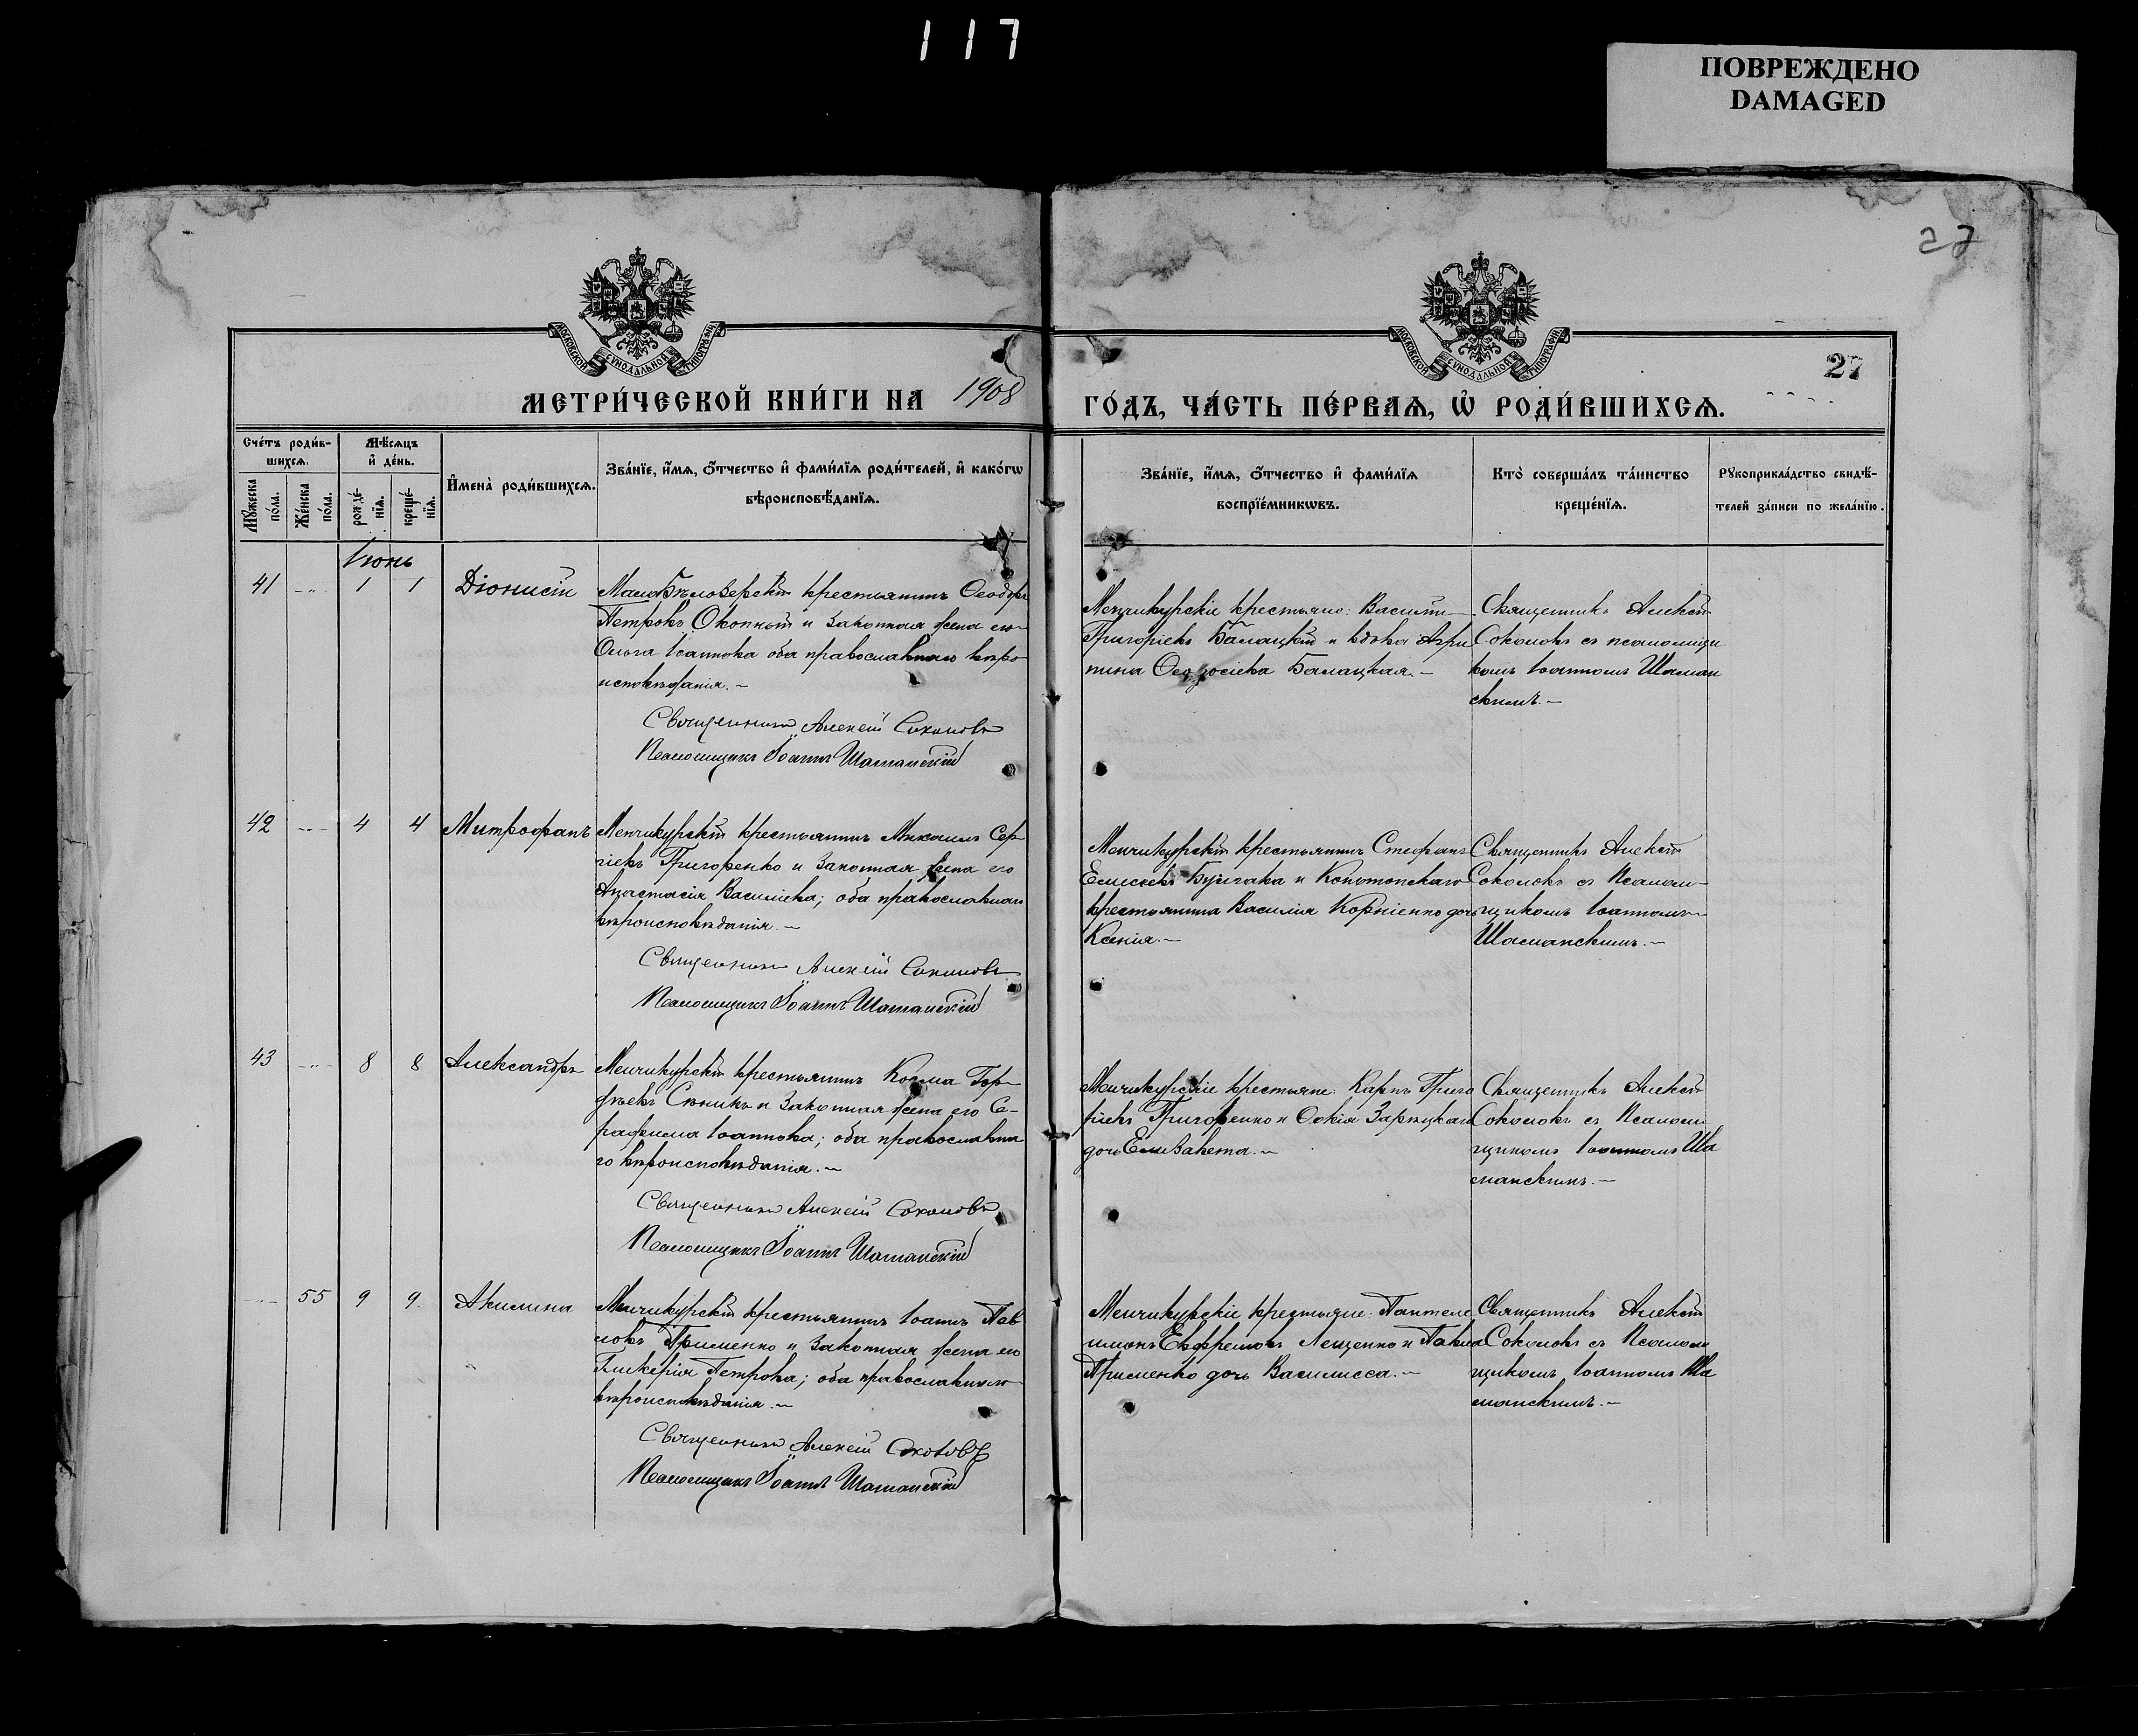 117
ПОВРЕЖДЕНО
DAMAGED
27
МОСКОВСКОЙ СѴНОДАЛЬНОЙ ТИПОГРАФІИ
МОСКОВСКОЙ СѴНОДАЛЬНОЙ ТИПОГРАФІИ
27
МЕТРИ́ЧЕСКОЙ КНИ́ГИ НА 1908 ГО́ДЪ, ЧА́СТЬ ПЕ́РВАЯ, Ѡ РОДИ́ВШИХСЯ.
Сче́тъ роди́в-
шихся.
Мѣ́сяцъ
и де́нь.
Мꙋ́жеска
по́ла.
Же́нска
по́ла.
рожде́-
нїя.
креще́-
нїя.
И҆мена̀ роди́вшихся.
Зва́нїе, и҆́мя, ѻ҆́тчество и҆ фами́лїя роди́телей, и҆ како́гѡ
вѣроисповѣ́данїя.
Зва́нїе, и҆́мя, ѻ҆́тчество и҆ фами́лїя
воспрїе́мникѡвъ.
Кто̀ соверша́лъ та́инство
креще́нїя.
Рꙋкоприкла́дство свидѣ́-
телей за́писи по жела́нїю.
Іюнь
41 -"- 1 1 Діонисій
МалоБѣлозерскій крестьянинъ Ѳеодоръ
Петровъ Окопный и законная жена его
Ольга Іоаннова оба православнаго вѣро
исповѣданія.–
Священникъ Алексій Соколовъ
Псаломщикъ Іоаннъ Шаманскій
Менчикурскіе крестьяне: Василій
Григоріевъ Балацкій и вдова Агри
пина Ѳеодосіева Балацкая.–
Священникъ Алексій
Соколовъ съ псаломщи
комъ Іоанномъ Шаман
скимъ.–
42 -"- 4 4 Митрофанъ
Менчикурскій крестьянинъ Михаилъ Сер
гіевъ Григоренко и законная жена его
Анастасія Василіева; оба православнаго
вѣроисповѣданія.–
Священникъ Алексій Соколовъ
Псаломщикъ Іоаннъ Шаманскій
Менчикурскій крестьянинъ Стефанъ
Елисеевъ и Конотопскаго
крестьянина Василія Корніенко дочь
Ксенія.–
Священникъ Алексій
Соколовъ съ Псалом-
щикомъ Іоанномъ
Шаманскимъ.–
43 -"- 8 8 Александръ
Менчикурскій крестьянинъ Косма Гор
дѣевъ и законная жена его Се-
рафима Іоаннова; оба православна
го вѣроисповѣданія.–
Священникъ Алексій Соколовъ
Псаломщикъ Іоаннъ Шаманскій
Менчикурскіе крестьяне: Карпъ Григо
ріевъ Григоренко и Зарѣцкаго
дочь Елизавета.–
Священникъ Алексій
Соколовъ съ Псалом
щикомъ Іоанномъ Ша
манскимъ.–
-"- 55 9 9 Акилина
Менчикурскій крестьянинъ Іоаннъ Пав
ловъ Присменко и законная жена его
Гликерія Петрова; оба православнаго
вѣроисповѣданія.–
Священникъ Алексій Соколовъ
Псаломщикъ Іоаннъ Шаманскій
Менчикурскіе крестьяне: Пантеле
имонъ Евфремовъ Лещенко и Павла
Присменко дочь Василисса.–
Священникъ Алексій
Соколовъ съ Псалом
щикомъ Іоанномъ Ша
манскимъ.–